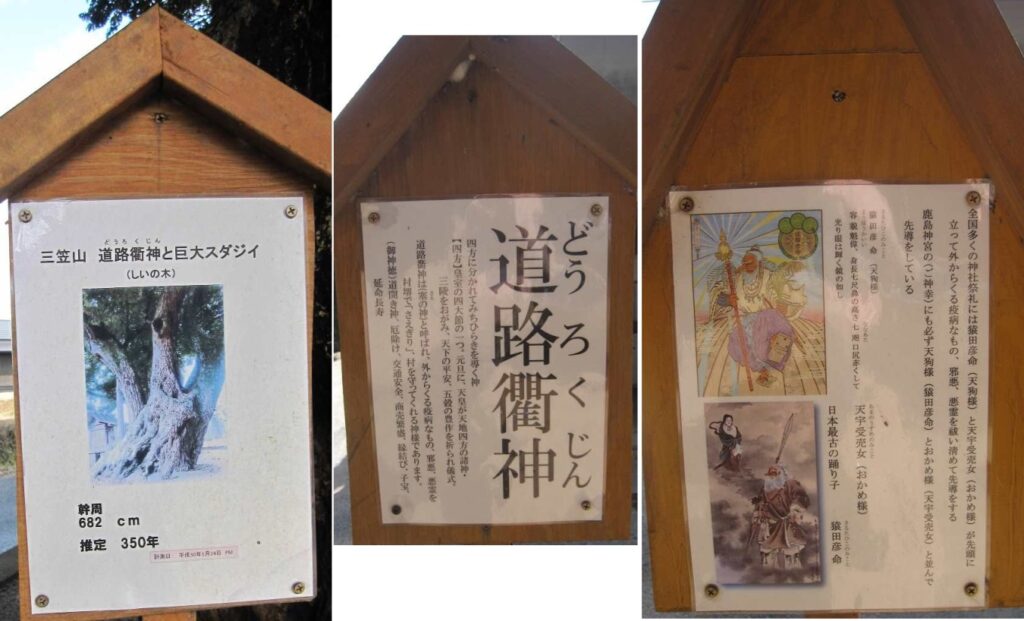 三笠山 道路衢神と巨大スダジイ
どうろくじん
(しいの木)
幹周
682 cm
推定 350年
計測日: 平成30年1月24日 PM
どうろくじん
道路衢神
四方に分かれてみちひらきを導く神
【四方】皇室の四大節の一つ、元旦に、天皇が天地四方の諸神・
三陵をおがみ、天下の平安、五穀の豊作を祈られ儀式。
道路衢神は(塞の神)と呼ばれ、外からくる疫病なもの、邪悪、悪霊を
村堺で「さえぎり」、村を守ってくれる神様であります。
(御神徳)道開き神、厄除け、交通安全、商売繁盛、縁結び、子宝、
延命長寿
全国多くの神社祭礼には猿田彦命(天狗様)と天宇受売女(おかめ様)が先頭に
立って外からくる疫病なもの、邪悪、悪霊を祓い清めて先導をする
鹿島神宮の(ご神幸)にも必ず天狗様(猿田彦命)とおかめ様(天宇受売女)と並んで
先導をしている
猿田彦命(天狗様)
容貌魁偉、身長七尺鼻の高さ七咫口尻赤くして
光り眼は輝く鏡の如し
天宇受売女(おかめ様)
日本最古の踊り子
猿田彦命